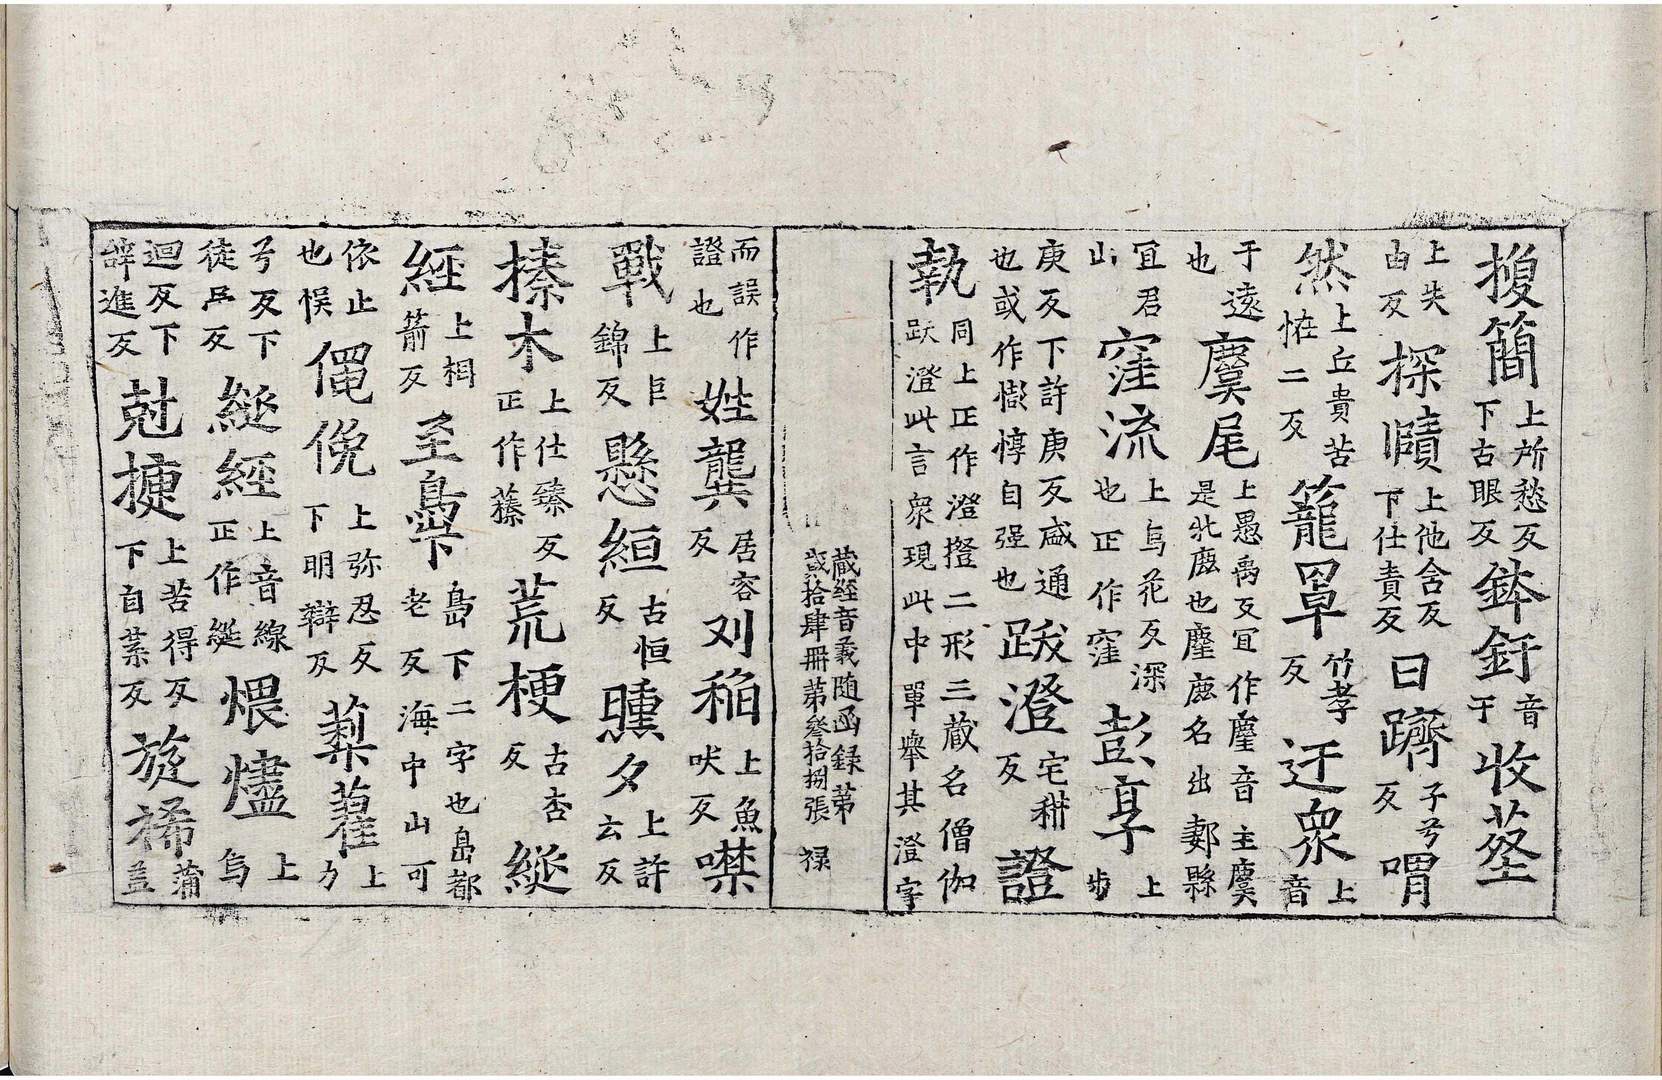 搜簡上所愁反下古眼反鉢釪音于收
上失由反探賾上他含反下仕責反曰躋子兮反喟
然上丘貴苦恠二反籠罩竹孝反迂衆上音
于遠也麌尾上愚禹反冝作麈音主麌是牝鹿也麈鹿名出鄴縣
冝君山窪流上烏花反深也正作窪彭享上步
庚反下許庚反盛通也或作憉悙自强也跋澄宅耕反證
執同上正作澄撜二形三藏名僧伽跋澄此言衆現此中單舉其澄字
藏經音義随函録第貳拾肆冊第叄拾捌張 禄
而誤作證也姓龔居容反刈稻上魚吠反噤
戰上巨錦反懸絙古恒反曛夕上許云反
榛木上仕臻反正作蓁荒梗古杏反綖
經上相箭反至島下二字也島都老反海中山可
依止也悮僶俛上弥忍反下明辯反藋上力
兮反下徒吊反綖經上音線正作綖煨燼上烏
迴反下辝進反尅捷上苦得反下自葉反旋蒲盖